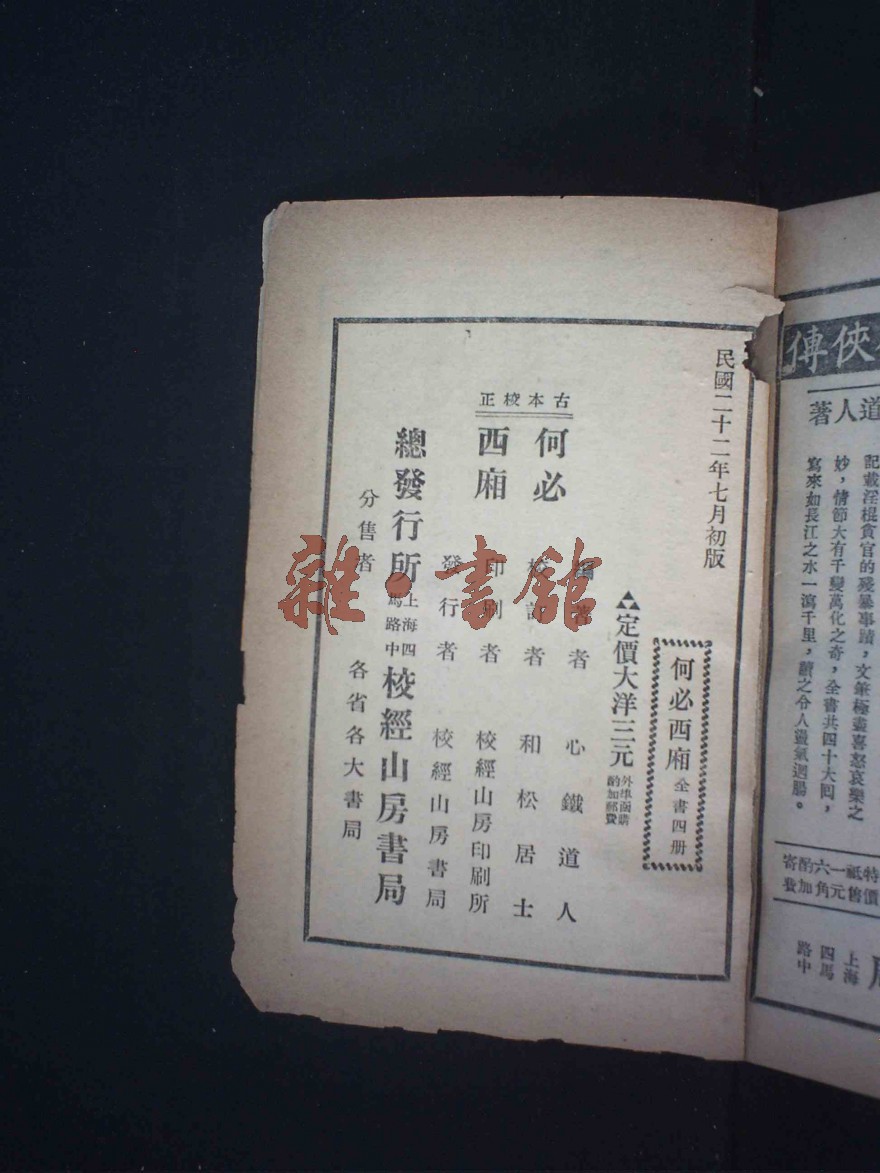 俠傳
道人著
記載淫棍貪官的殘暴事蹟，文筆極盡喜怒哀樂之
妙，情節大有千變萬化之奇，全書共四十大囘，
寫來如長江之水一瀉千里，讀之令人盪氣迴腸。
特價
祗售
一元
六角
酌加
寄
上海
四馬
路中
民國二十二年七月初版
何必西廂 全書四册
定價大洋三元 外埠函購酌加郵費
古本校正
何必
西廂
編著者 心鐵道人
校訂者 和松居士
印刷者 校經山房印刷所
發行者 校經山房書局
總發行所 上海四馬路中 校經山房書局
分售者 各省各大書局
雜·書館